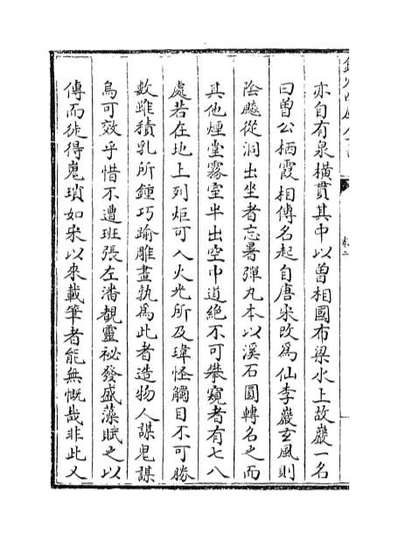 亦自有泉橫貫其中以曾相國布梁水上故巖一名
曰曾公栖霞相傳名起自唐宋改為仙李巖玄風則
陰飈從洞出坐者忘暑彈丸本以溪石圓轉名之而
其他煙堂霧室半出空中道絕不可攀窺者有七八
處若在地上列炬可入火光所及瑋怪觸目不可勝
數雖積乳所鍾巧踰雕畫孰為此者造物人謀鬼謀
烏可效乎惜不遭班張左潘覩靈祕發盛藻賦之以
傳而徒得嵬瑣如宋以來載筆者能無慨哉非此又